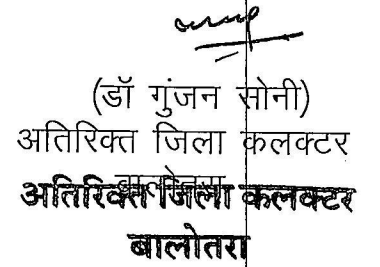 (डॉ गुंजन सोनी)
अतिरिक्त जिला कलक्टर
बालोतरा
अतिरिक्त जिला कलक्टर
बालोतरा